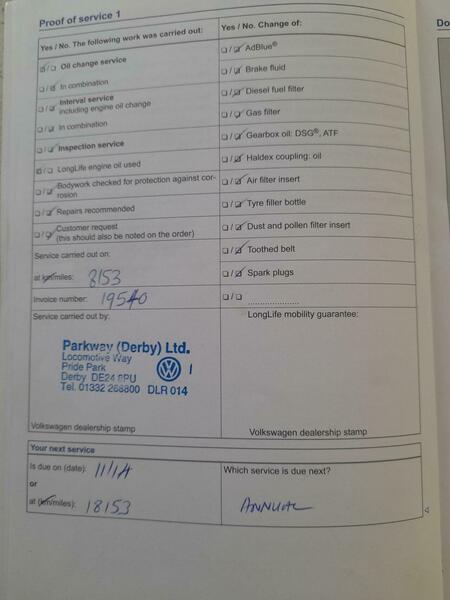 Proof of service 1
Do
Yes / No. The following work was carried out:
☑/☐ Oil change service
☐/☑ In combination
☐/☑ Interval service
including engine oil change
☐/☑ In combination
☐/☑ Inspection service
☑/☐ LongLife engine oil used
☐/☑ Bodywork checked for protection against cor-
rosion
☐/☑ Repairs recommended
☐/☑ Customer request
(this should also be noted on the order)
Service carried out on:
at km/miles: 8153
Invoice number: 19540
Service carried out by:
Parkway (Derby) Ltd.
Locomotive Way
Pride Park
Derby DE24 8PU
Tel. 01332 268800 DLR 014
Volkswagen dealership stamp
Yes / No. Change of:
☐/☑ AdBlue®
☐/☑ Brake fluid
☐/☑ Diesel fuel filter
☐/☑ Gas filter
☐/☑ Gearbox oil: DSG®, ATF
☐/☑ Haldex coupling: oil
☐/☑ Air filter insert
☐/☑ Tyre filler bottle
☐/☑ Dust and pollen filter insert
☐/☑ Toothed belt
☐/☑ Spark plugs
☐/☐ ....................
LongLife mobility guarantee:
Volkswagen dealership stamp
Your next service
Is due on (date): 11/14
or
at (km/miles): 18153
Which service is due next?
ANNUAL